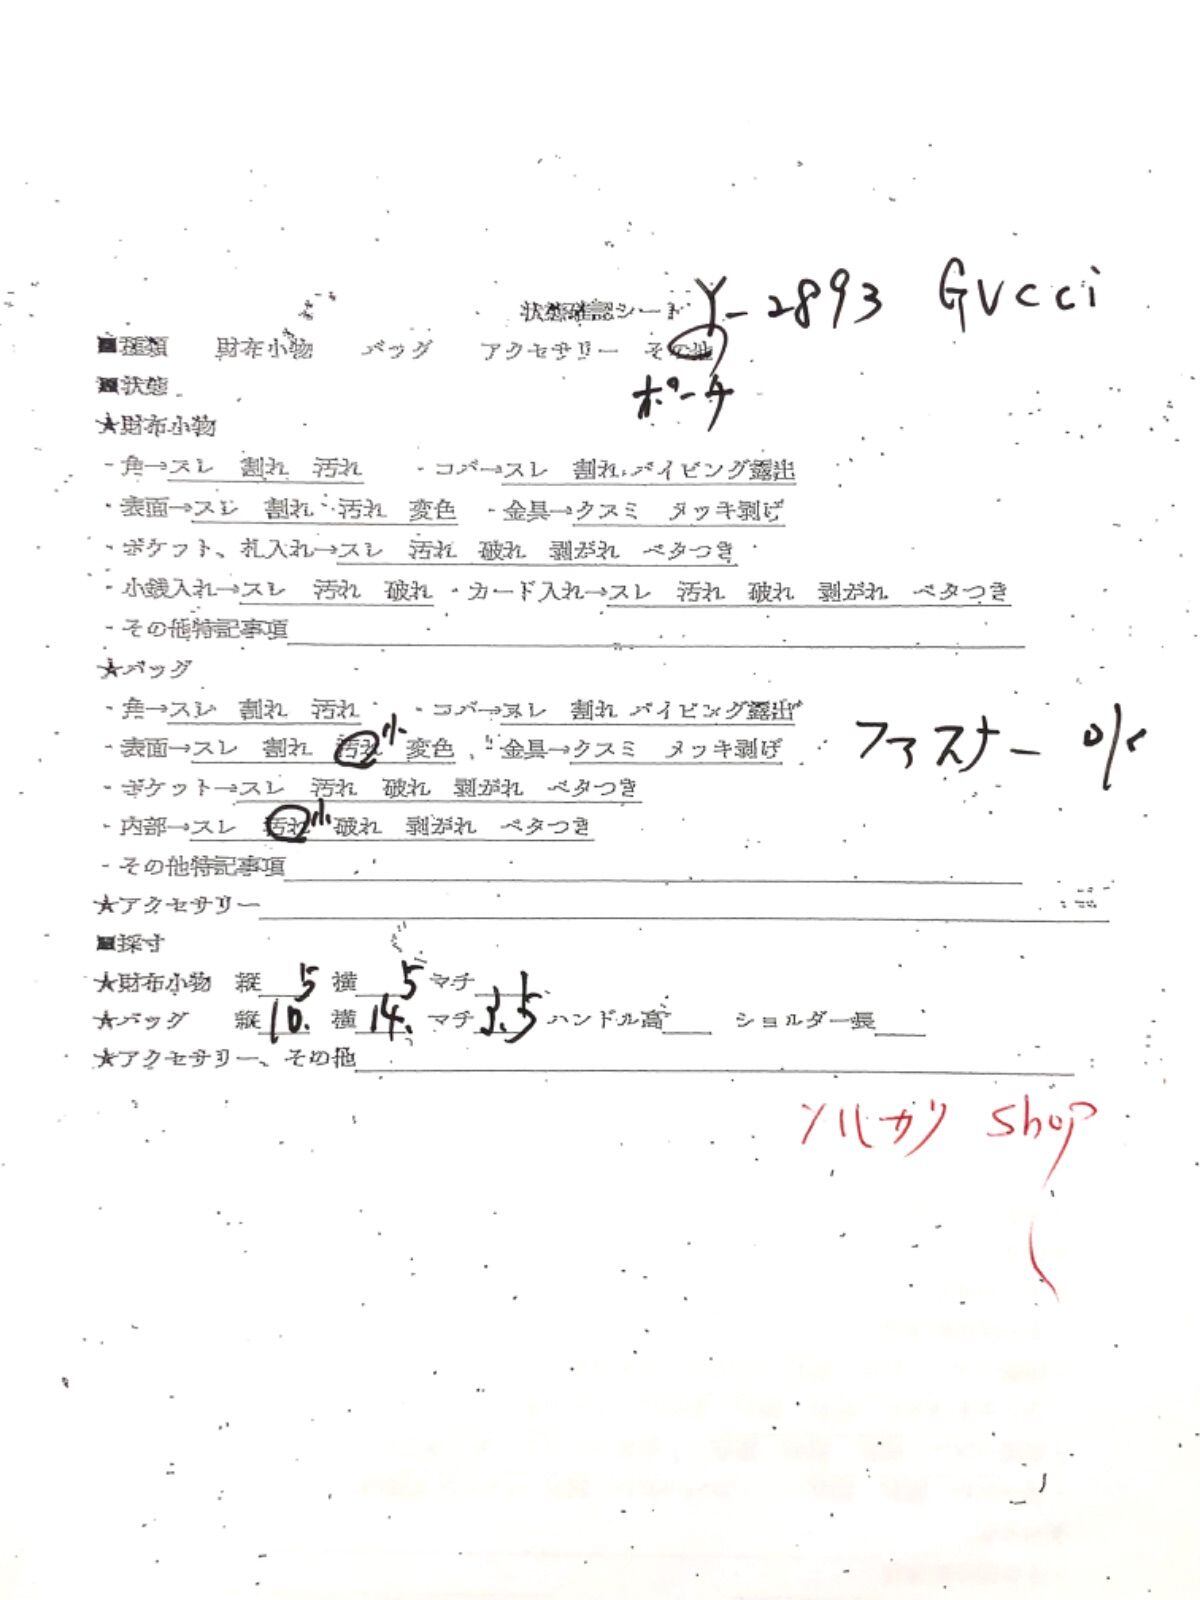 状態確認シート Y-2893 GUCCi
■種類 財布小物 バッグ アクセサリー その他
■状態 ポーチ
★財布小物
・角→スレ 割れ 汚れ ・コバ→スレ 割れ パイピング露出
・表面→スレ 割れ 汚れ 変色 ・金具→クスミ メッキ剥げ
・ポケット、札入れ→スレ 汚れ 破れ 剥がれ ベタつき
・小銭入れ→スレ 汚れ 破れ ・カード入れ→スレ 汚れ 破れ 剥がれ ベタつき
・その他特記事項
★バッグ
・角→スレ 割れ 汚れ ・コバ→スレ 割れ パイピング露出
・表面→スレ 割れ 汚れ 小 変色 ・金具→クスミ メッキ剥げ ファスナー OK
・ポケット→スレ 汚れ 破れ 剥がれ ベタつき
・内部→スレ 汚れ 小 破れ 剥がれ ベタつき
・その他特記事項
★アクセサリー
■採寸
★財布小物 縦 5 横 5 マチ
★バッグ 縦 10. 横 14. マチ 3.5 ハンドル高 ショルダー長
★アクセサリー、その他
shop